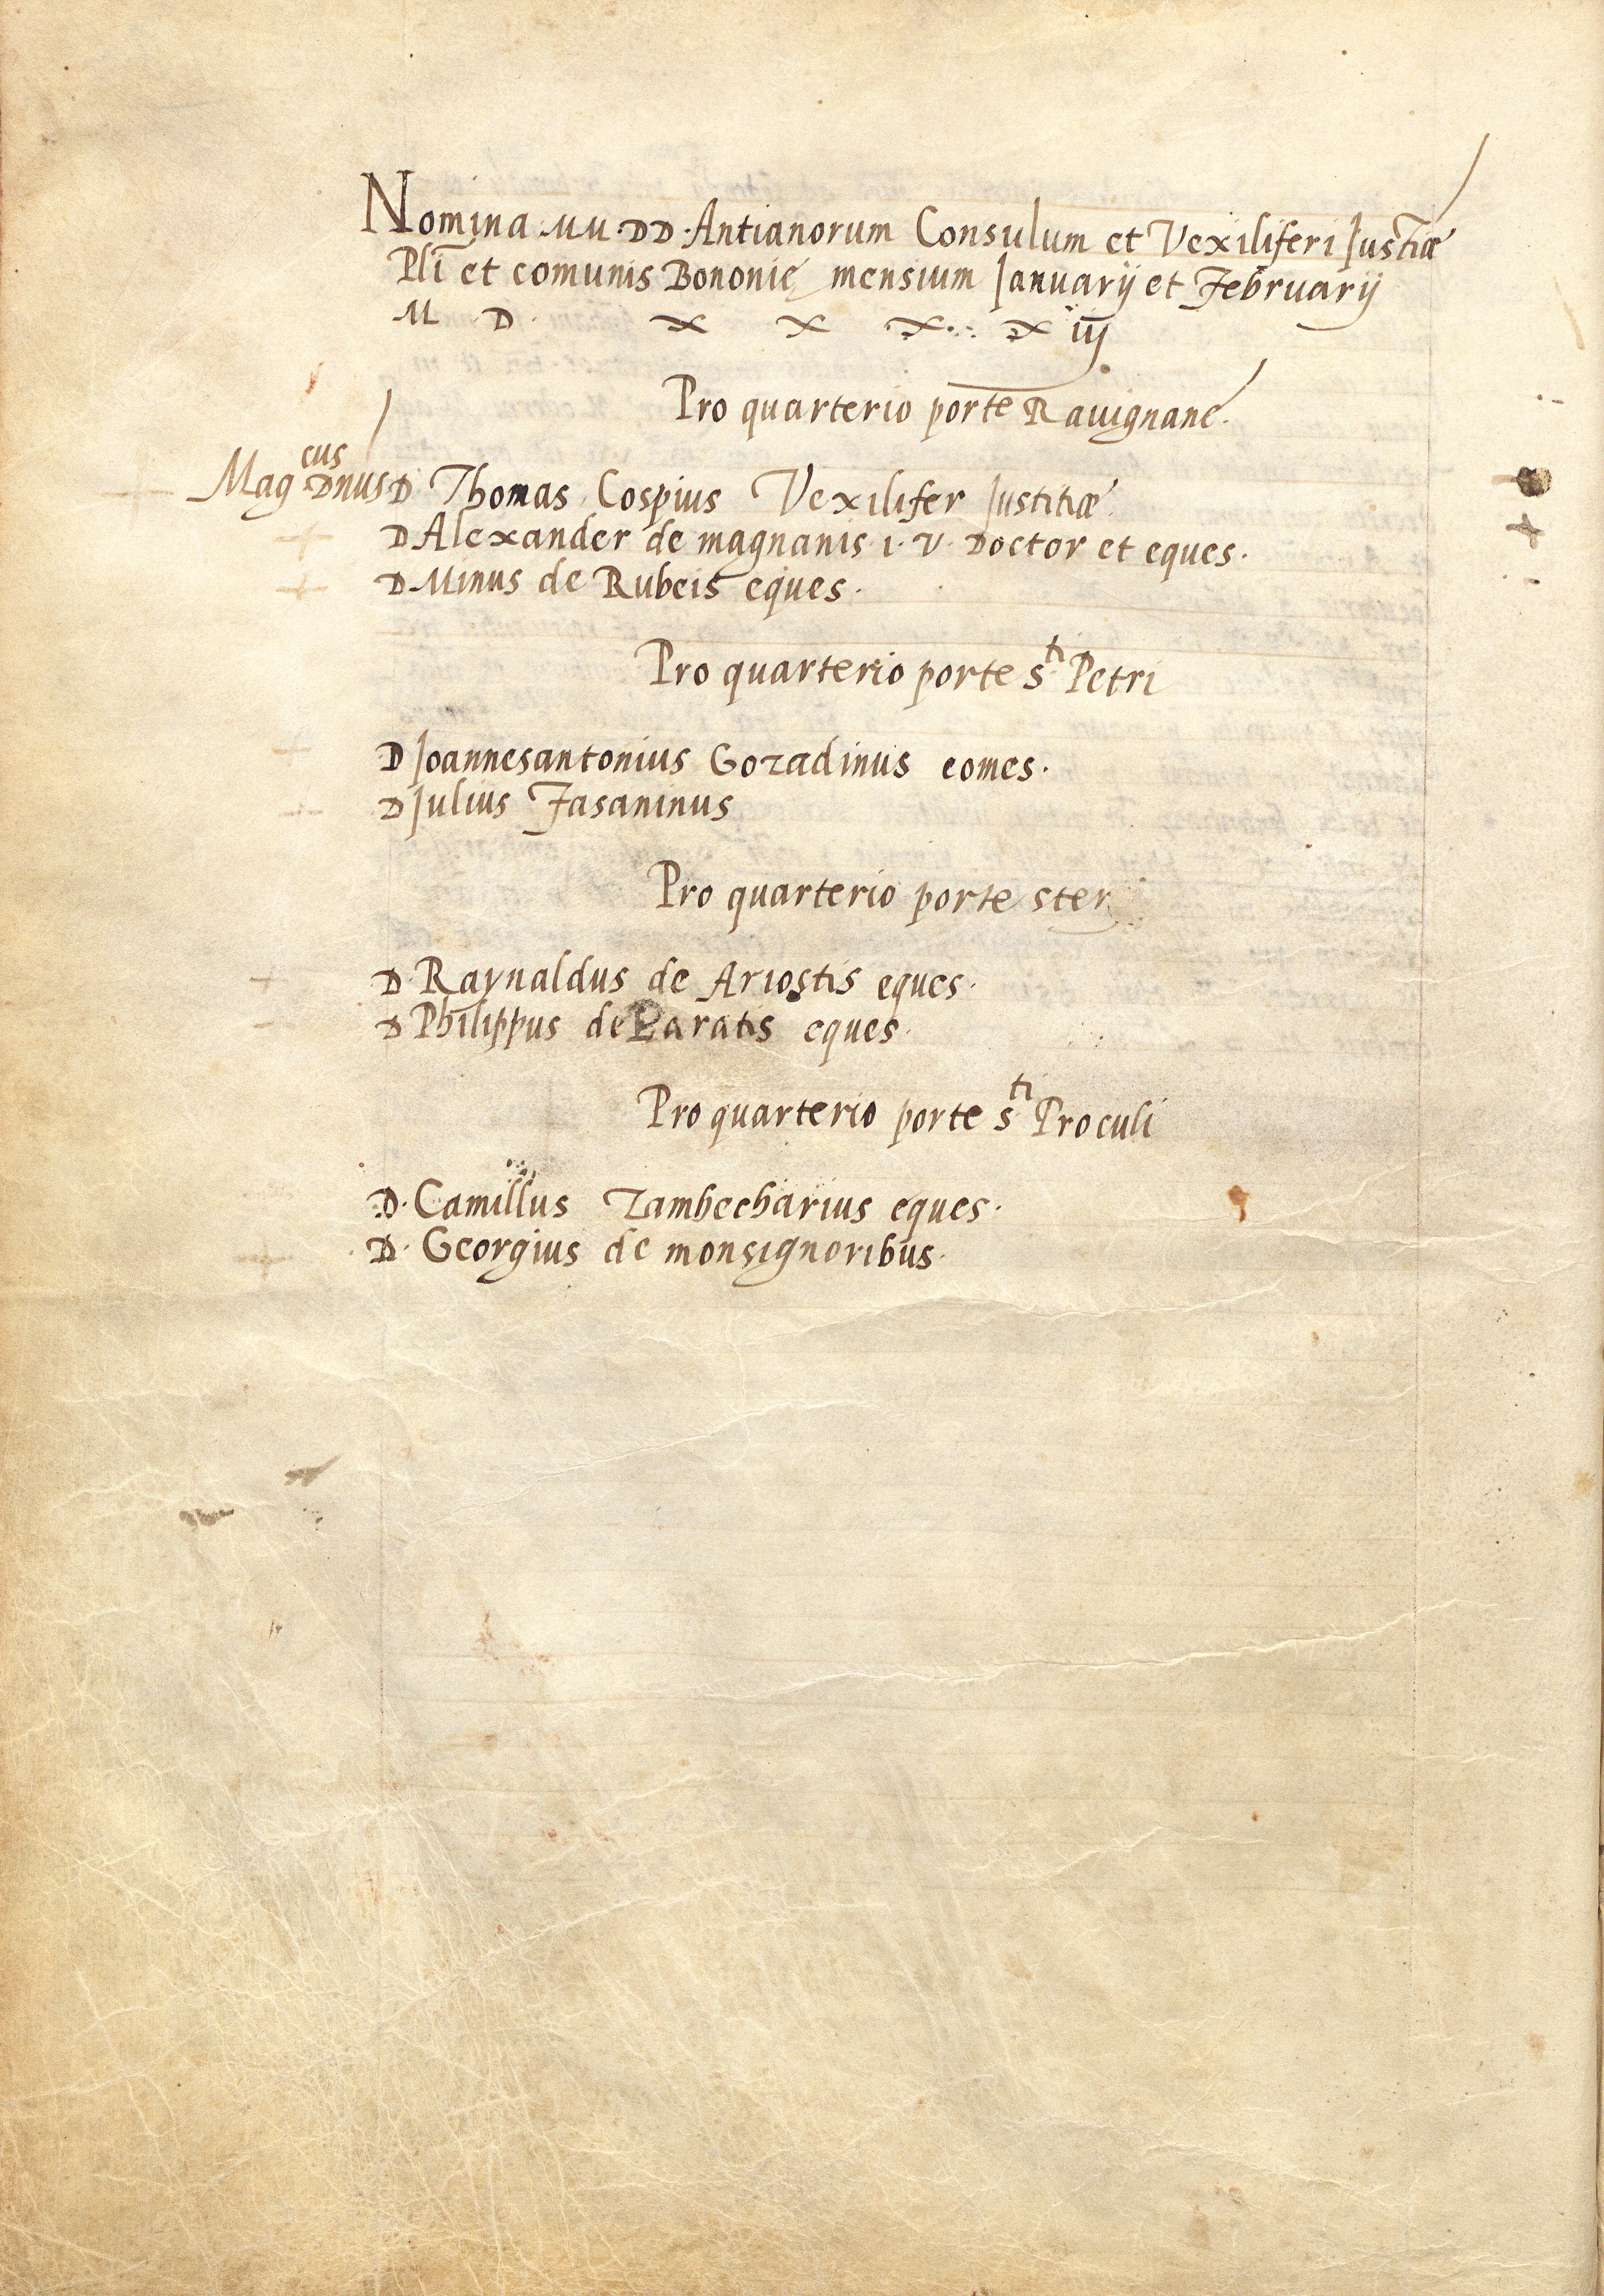 Nomina MM·DD·Antianorum Consulum et Vexiliferi Justiæ
Pli et comunis Bononię mensium Januarÿ et Februarÿ
M D x x x x iij
Pro quarterio porte Ravignane.
Magcus Dnus D Thomas Cospius Vexilifer Justitiæ
D Alexander de magnanis i. v. Doctor et eques.
D Minus de Rubeis eques.
Pro quarterio porte Sti Petri
D Joannesantonius Gozadinus comes.
D Julius Fasaninus
Pro quarterio porte ster
D. Raynaldus de Ariostis eques.
D Philippus de eques.
Pro quarterio porte sti Proculi
D. Camillus Zambecharius eques.
D. Georgius de monsignoribus.